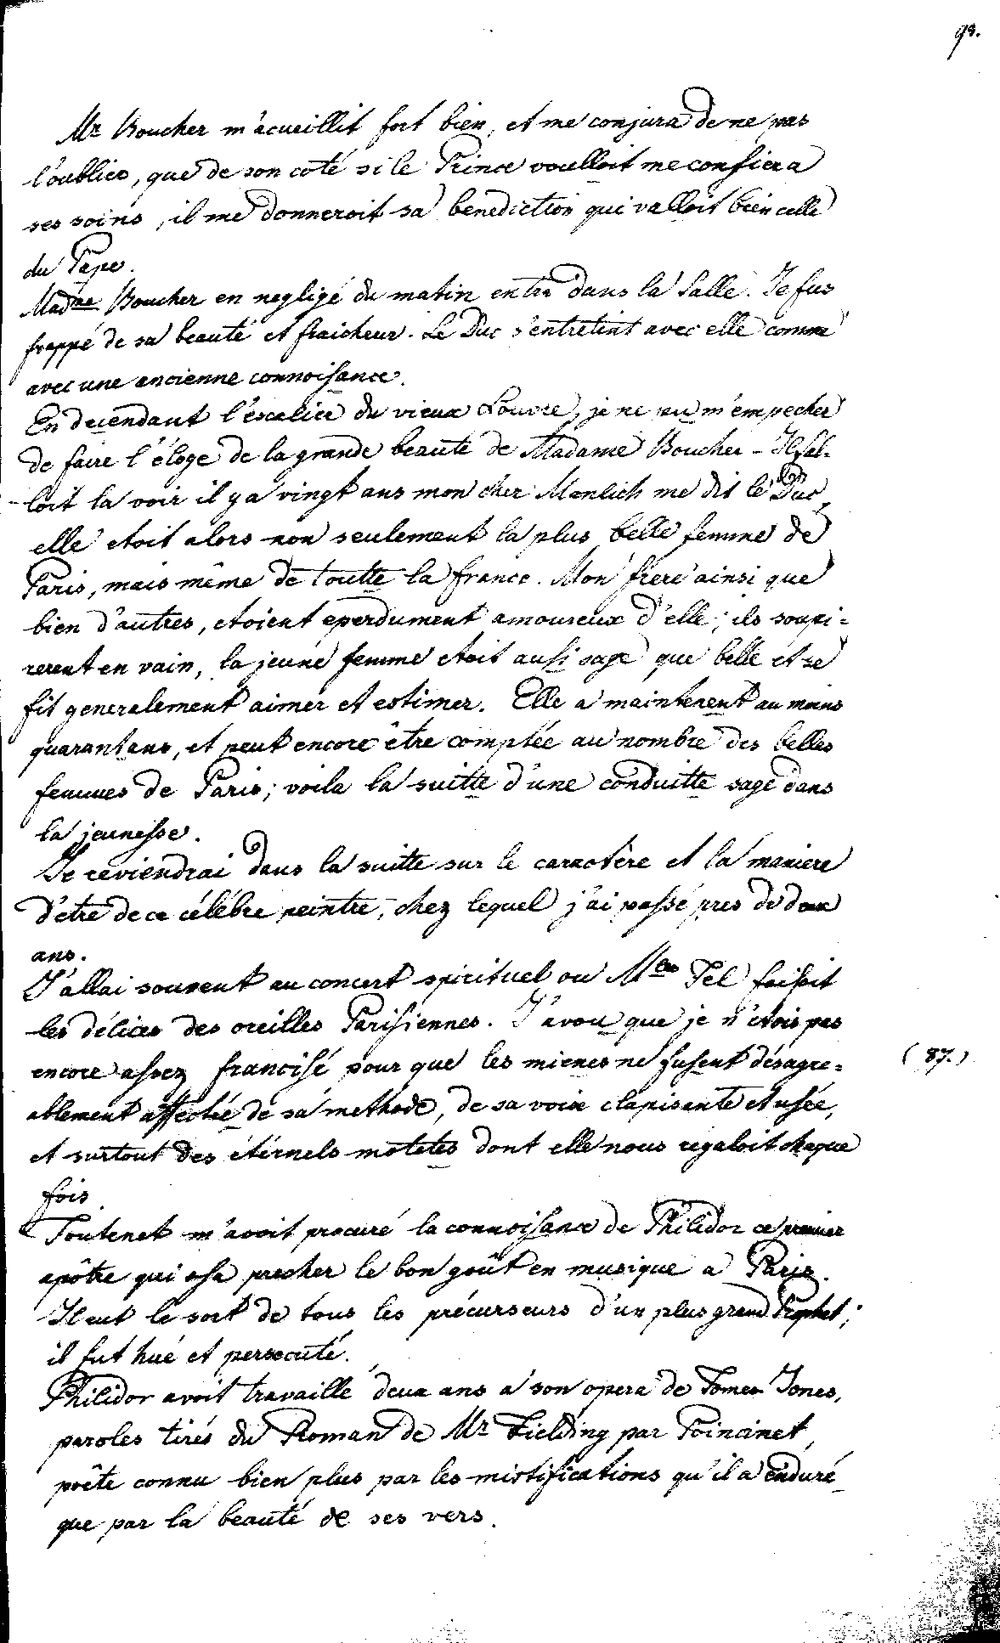 98.
Mr Boucher m'acueillit fort bien, et me conjura de ne pas
l'oublier, que de son coté si le Prince voulloit me confier a
ses soins, il me donneroit sa benediction qui valloit bien celle
du Pape.
Madme Boucher en negligé du matin entra dans la Salle. Je fus
frappé de sa beauté et fraicheur. Le Duc s'entretint avec elle comme
avec une ancienne connoisance.
En decendant l'escalier du vieux Louvre, je ne pu m'empecher
de faire l'éloge de la grande beauté de Madame Boucher - Il fal-
loit la voir il y a vingt ans mon cher Manlich me dit le Duc,
elle etoit alors non seulement la plus belle femme de
Paris, mais même de toutte la france. Mon frere ainsi que
bien d'autres, etoient eperdument amoureux d'elle; ils soupi=
rerent en vain, la jeune femme etoit ausi sage que belle et se
fit generalement aimer et estimer. Elle a maintenent au moins
quarantans, et peut encore être comptée au nombre des belles
femmes de Paris; voila la suitte d'une conduitte sage dans
la jeunesse.
Je reviendrai dans la suitte sur le caractère et la maniere
d'etre de ce célébre peintre, chez lequel j'ai passé pres de deux
ans.
J'allai souvent au concert spirituel ou Mlle Fel faisoit
les délices des oreilles Parisiennes. J'avou que je n'etois pas
encore assez francisé pour que les mienes ne fusent désagre=
(87.)
ablement affectée de sa methode, de sa voix clapisante et usée,
et surtout des étérnels motetes dont elle nous regaloit chaque
fois.
Foutenet m'avoit procuré la connoisance de Philidor ce premier
apôtre qui osa precher le bon goût en musique a Paris.
Il eut le sort de tous les précurseurs d'un plus grand Prophet;
il fut hué et persecuté.
Philidor avoit travaille deux ans a son opera de Tomes Jones,
paroles tirés du Roman de Mr Fielding par Poincinet,
poête connu bien plus par les mistifications qu'il a enduré
que par la beauté de ses vers.